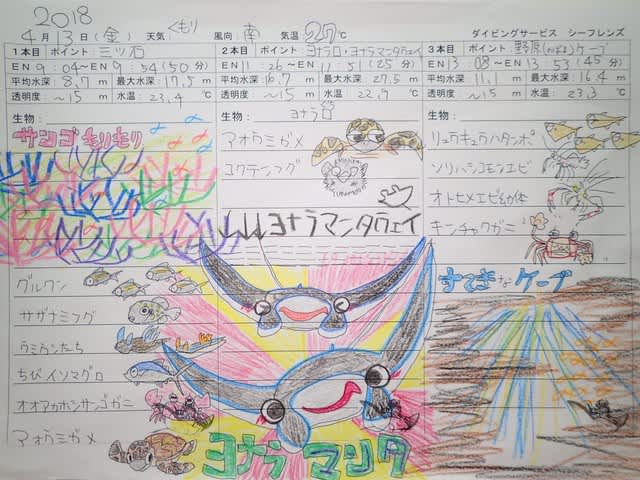 2018
4月13日(金) 天気 くもり 風向 南 気温 27℃ ダイビングサービス シーフレンズ
1本目 ポイント: 三ツ石
EN 9:04〜EN 9:54(50分)
平均水深: 8.7m 最大水深: 17.5m
透明度: ~15m 水温: 23.4℃
生物:
サンゴもりもり
グルクン
サザナミフグ
ウミウシたち
ちびイソマグロ
オオアカホシサンゴガニ
アオウミガメ
2本目 ポイント: ヨナラ0・ヨナラマンタウェイ
EN 11:26〜EN 11:51(25分)
平均水深: 16.7m 最大水深: 27.5m
透明度: ~15m 水温: 22.9℃
生物: ヨナラ0
アオウミガメ
コクテンフグ
ヨナラマンタウェイ
ヨナラマンタ
3本目 ポイント: 野原(のばる)ケーブ
EN 13:08〜EN 13:53(45分)
平均水深: 11.1m 最大水深: 16.4m
透明度: ~15m 水温: 23.3℃
生物:
リュウキュウハタンポ
ソリハシコモンエビ
オトヒメエビ幼体
キンチャクガニ
すてきなケーブ